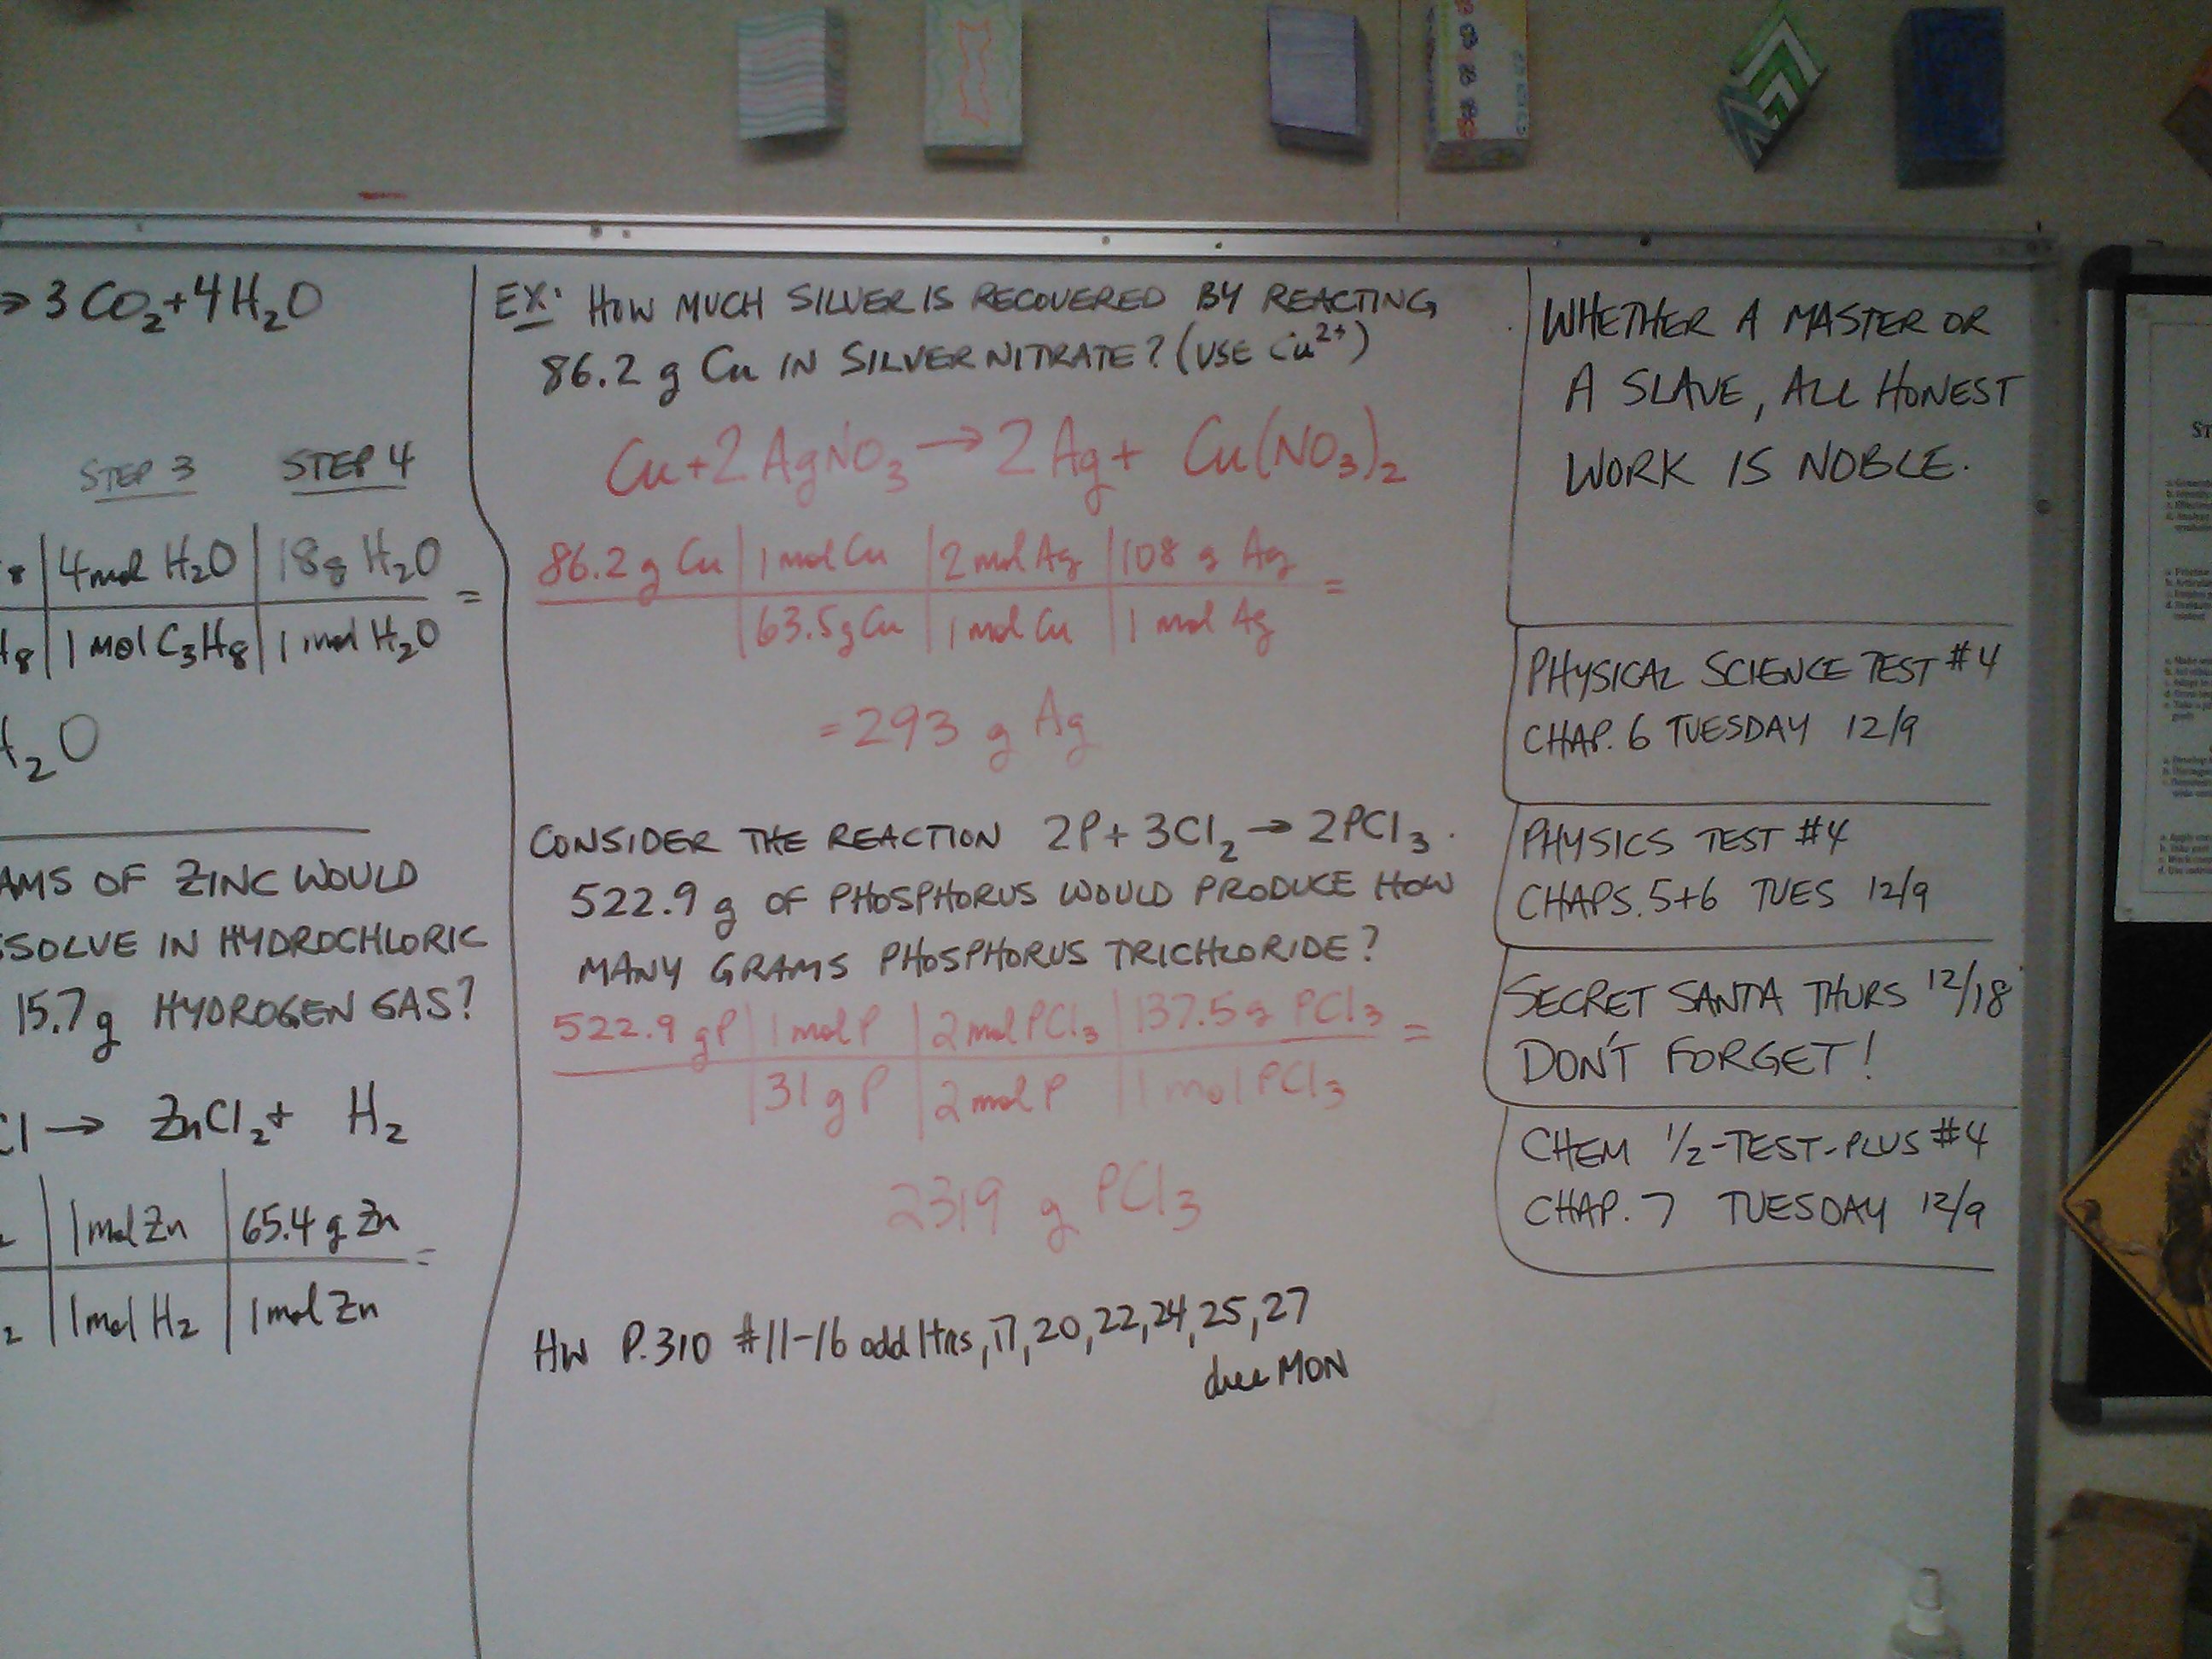 → 3CO₂+4H₂O
STEP 3 STEP 4
8 | 4 mol H₂O | 18g H₂O =
H₈ | 1 mol C₃H₈ | 1 mol H₂O
H₂O
AMS OF ZINC WOULD
SSOLVE IN HYDROCHLORIC
15.7g HYDROGEN GAS?
Cl → ZnCl₂ + H₂
2 | 1 mol Zn | 65.4 g Zn =
2 | 1 mol H₂ | 1 mol Zn
EX: HOW MUCH SILVER IS RECOVERED BY REACTING
86.2 g Cu IN SILVER NITRATE? (USE Cu²⁺)
Cu+2AgNO₃ → 2Ag + Cu(NO₃)₂
86.2 g Cu | 1 mol Cu | 2 mol Ag | 108 g Ag =
63.5 g Cu | 1 mol Cu | 1 mol Ag
= 293 g Ag
CONSIDER THE REACTION 2P + 3Cl₂ → 2PCl₃.
522.9 g OF PHOSPHORUS WOULD PRODUCE HOW
MANY GRAMS PHOSPHORUS TRICHLORIDE?
522.9 gP | 1 mol P | 2 mol PCl₃ | 137.5 g PCl₃ =
31 g P | 2 mol P | 1 mol PCl₃
2319 g PCl₃
HW P.310 #11-16 odd ltrs, 17, 20, 22, 24, 25, 27
due MON
WHETHER A MASTER OR
A SLAVE, ALL HONEST
WORK IS NOBLE.
PHYSICAL SCIENCE TEST #4
CHAP. 6 TUESDAY 12/9
PHYSICS TEST #4
CHAPS. 5+6 TUES 12/9
SECRET SANTA THURS 12/18
DON'T FORGET!
CHEM 1/2-TEST-PLUS #4
CHAP. 7 TUESDAY 12/9
ST